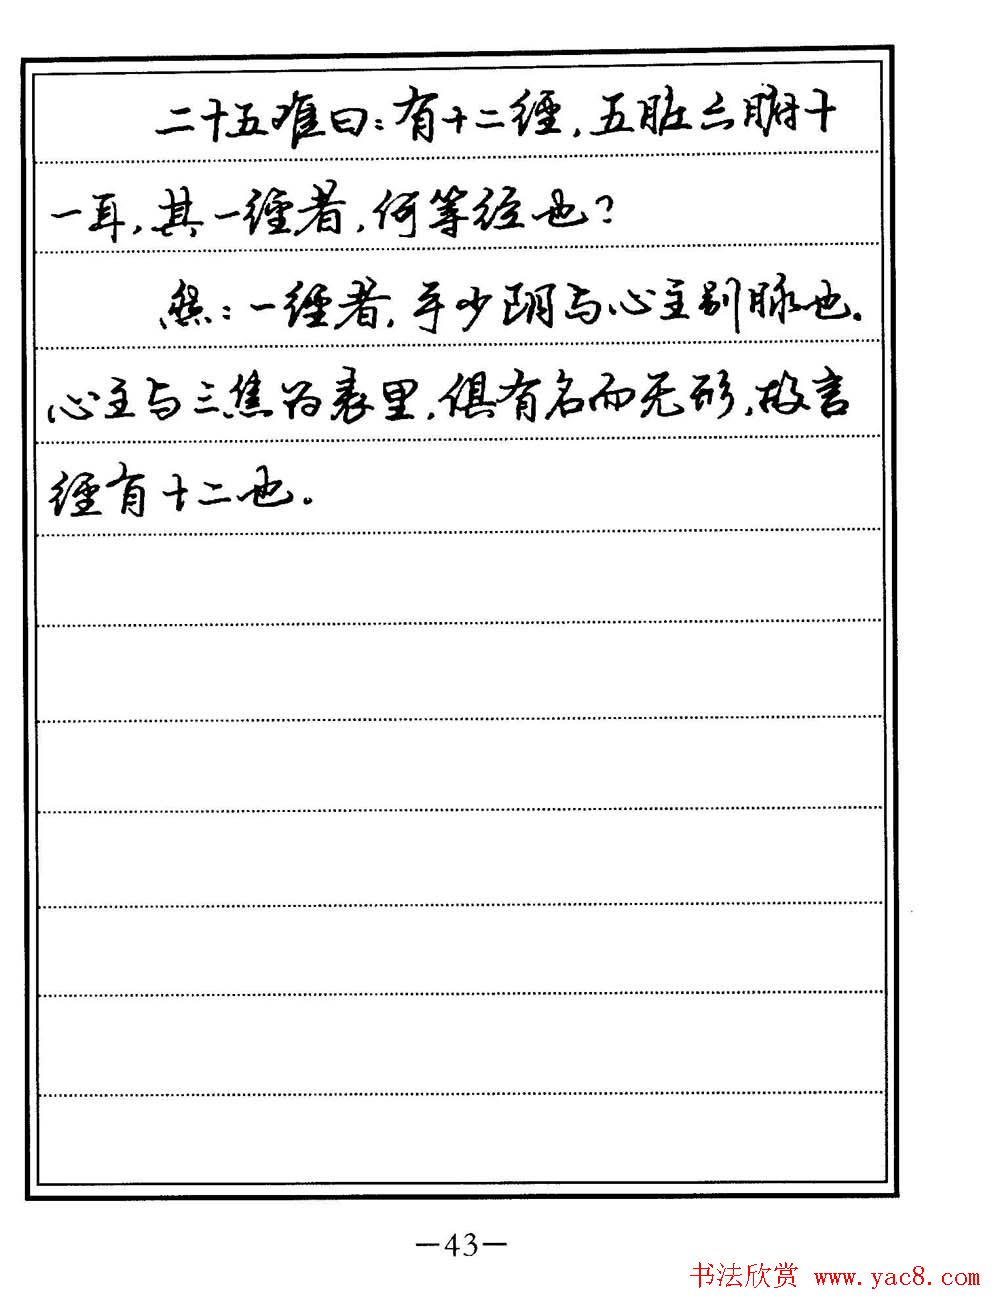 二十五难曰：有十二經，五脏六腑十
一耳，其一經者，何等经也？
然：一經者，手少阴与心主别脉也。
心主与三焦为表里，俱有名而无形，故言
經有十二也。
—43—
书法欣赏 www.yac8.com